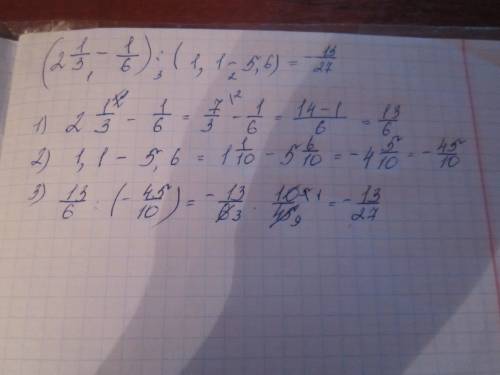 (2 1/3 - 1/6) : (1,1 - 5,6) = - 13/27
1 3 2
1) 2 1/3 \² - 1/6 = 7/3 \² - 1/6 = (14 - 1)/6 = 13/6
2) 1,1 - 5,6 = 1 1/10 - 5 6/10 = - 4 5/10 = - 45/10
3) 13/6 : (- 45/10) = - 13/6 3 · 10 5 1/45 9 = - 13/27